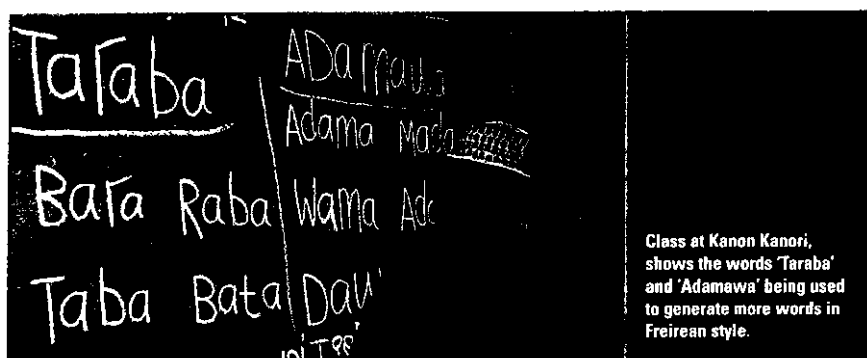 Taraba
Bara Raba
Taba Bata
ADamawa
Adama
Wama
Class at Kanon Kanori,
shows the words 'Taraba'
and 'Adamawa' being used
to generate more words in
Freirean style.